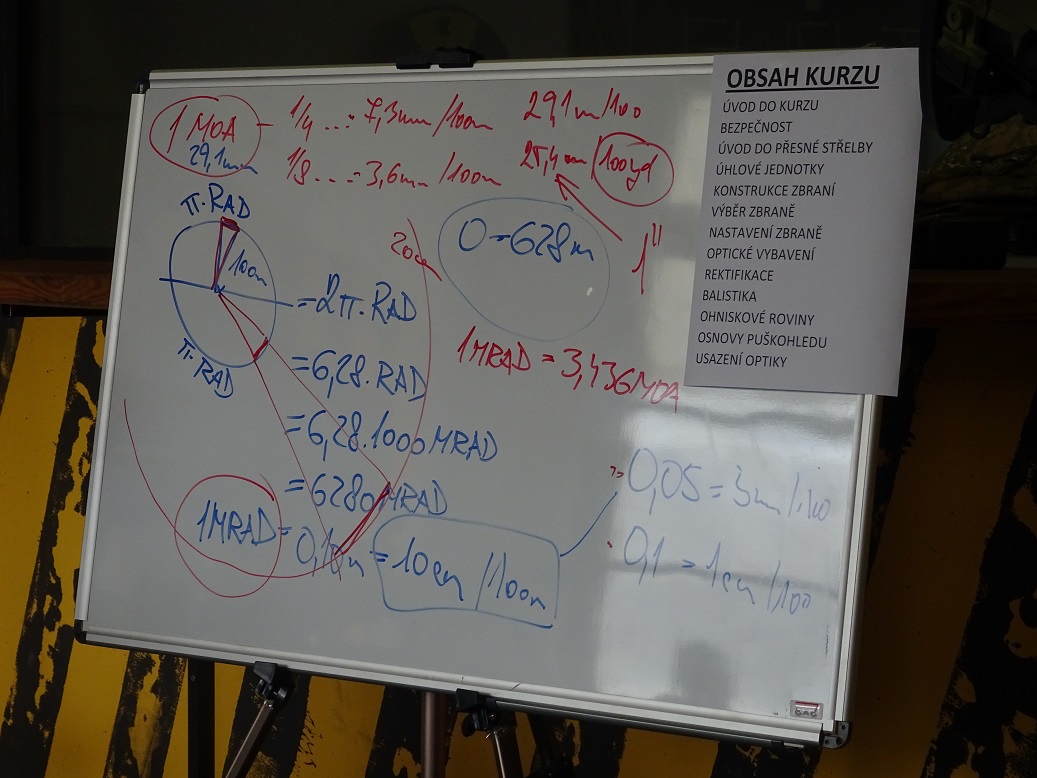 1 MOA - 1/4 ...: 7,3mm/100m 29,1m/100
29,1mm
1/8 ...: 3,6mm/100m 25,4mm/100yd
1"
π.RAD
100m
20cm
O=628m
= 2π.RAD
π.RAD
= 6,28.RAD
1MRAD = 3,436MOA
= 6,28.1000MRAD
= 6280MRAD
1MRAD = 0,10m = 10cm/100m
0,05 = 5mm/100
0,1 = 1cm/100
OBSAH KURZU
ÚVOD DO KURZU
BEZPEČNOST
ÚVOD DO PŘESNÉ STŘELBY
ÚHLOVÉ JEDNOTKY
KONSTRUKCE ZBRANÍ
VÝBĚR ZBRANĚ
NASTAVENÍ ZBRANĚ
OPTICKÉ VYBAVENÍ
REKTIFIKACE
BALISTIKA
OHNISKOVÉ ROVINY
OSNOVY PUŠKOHLEDU
USAZENÍ OPTIKY